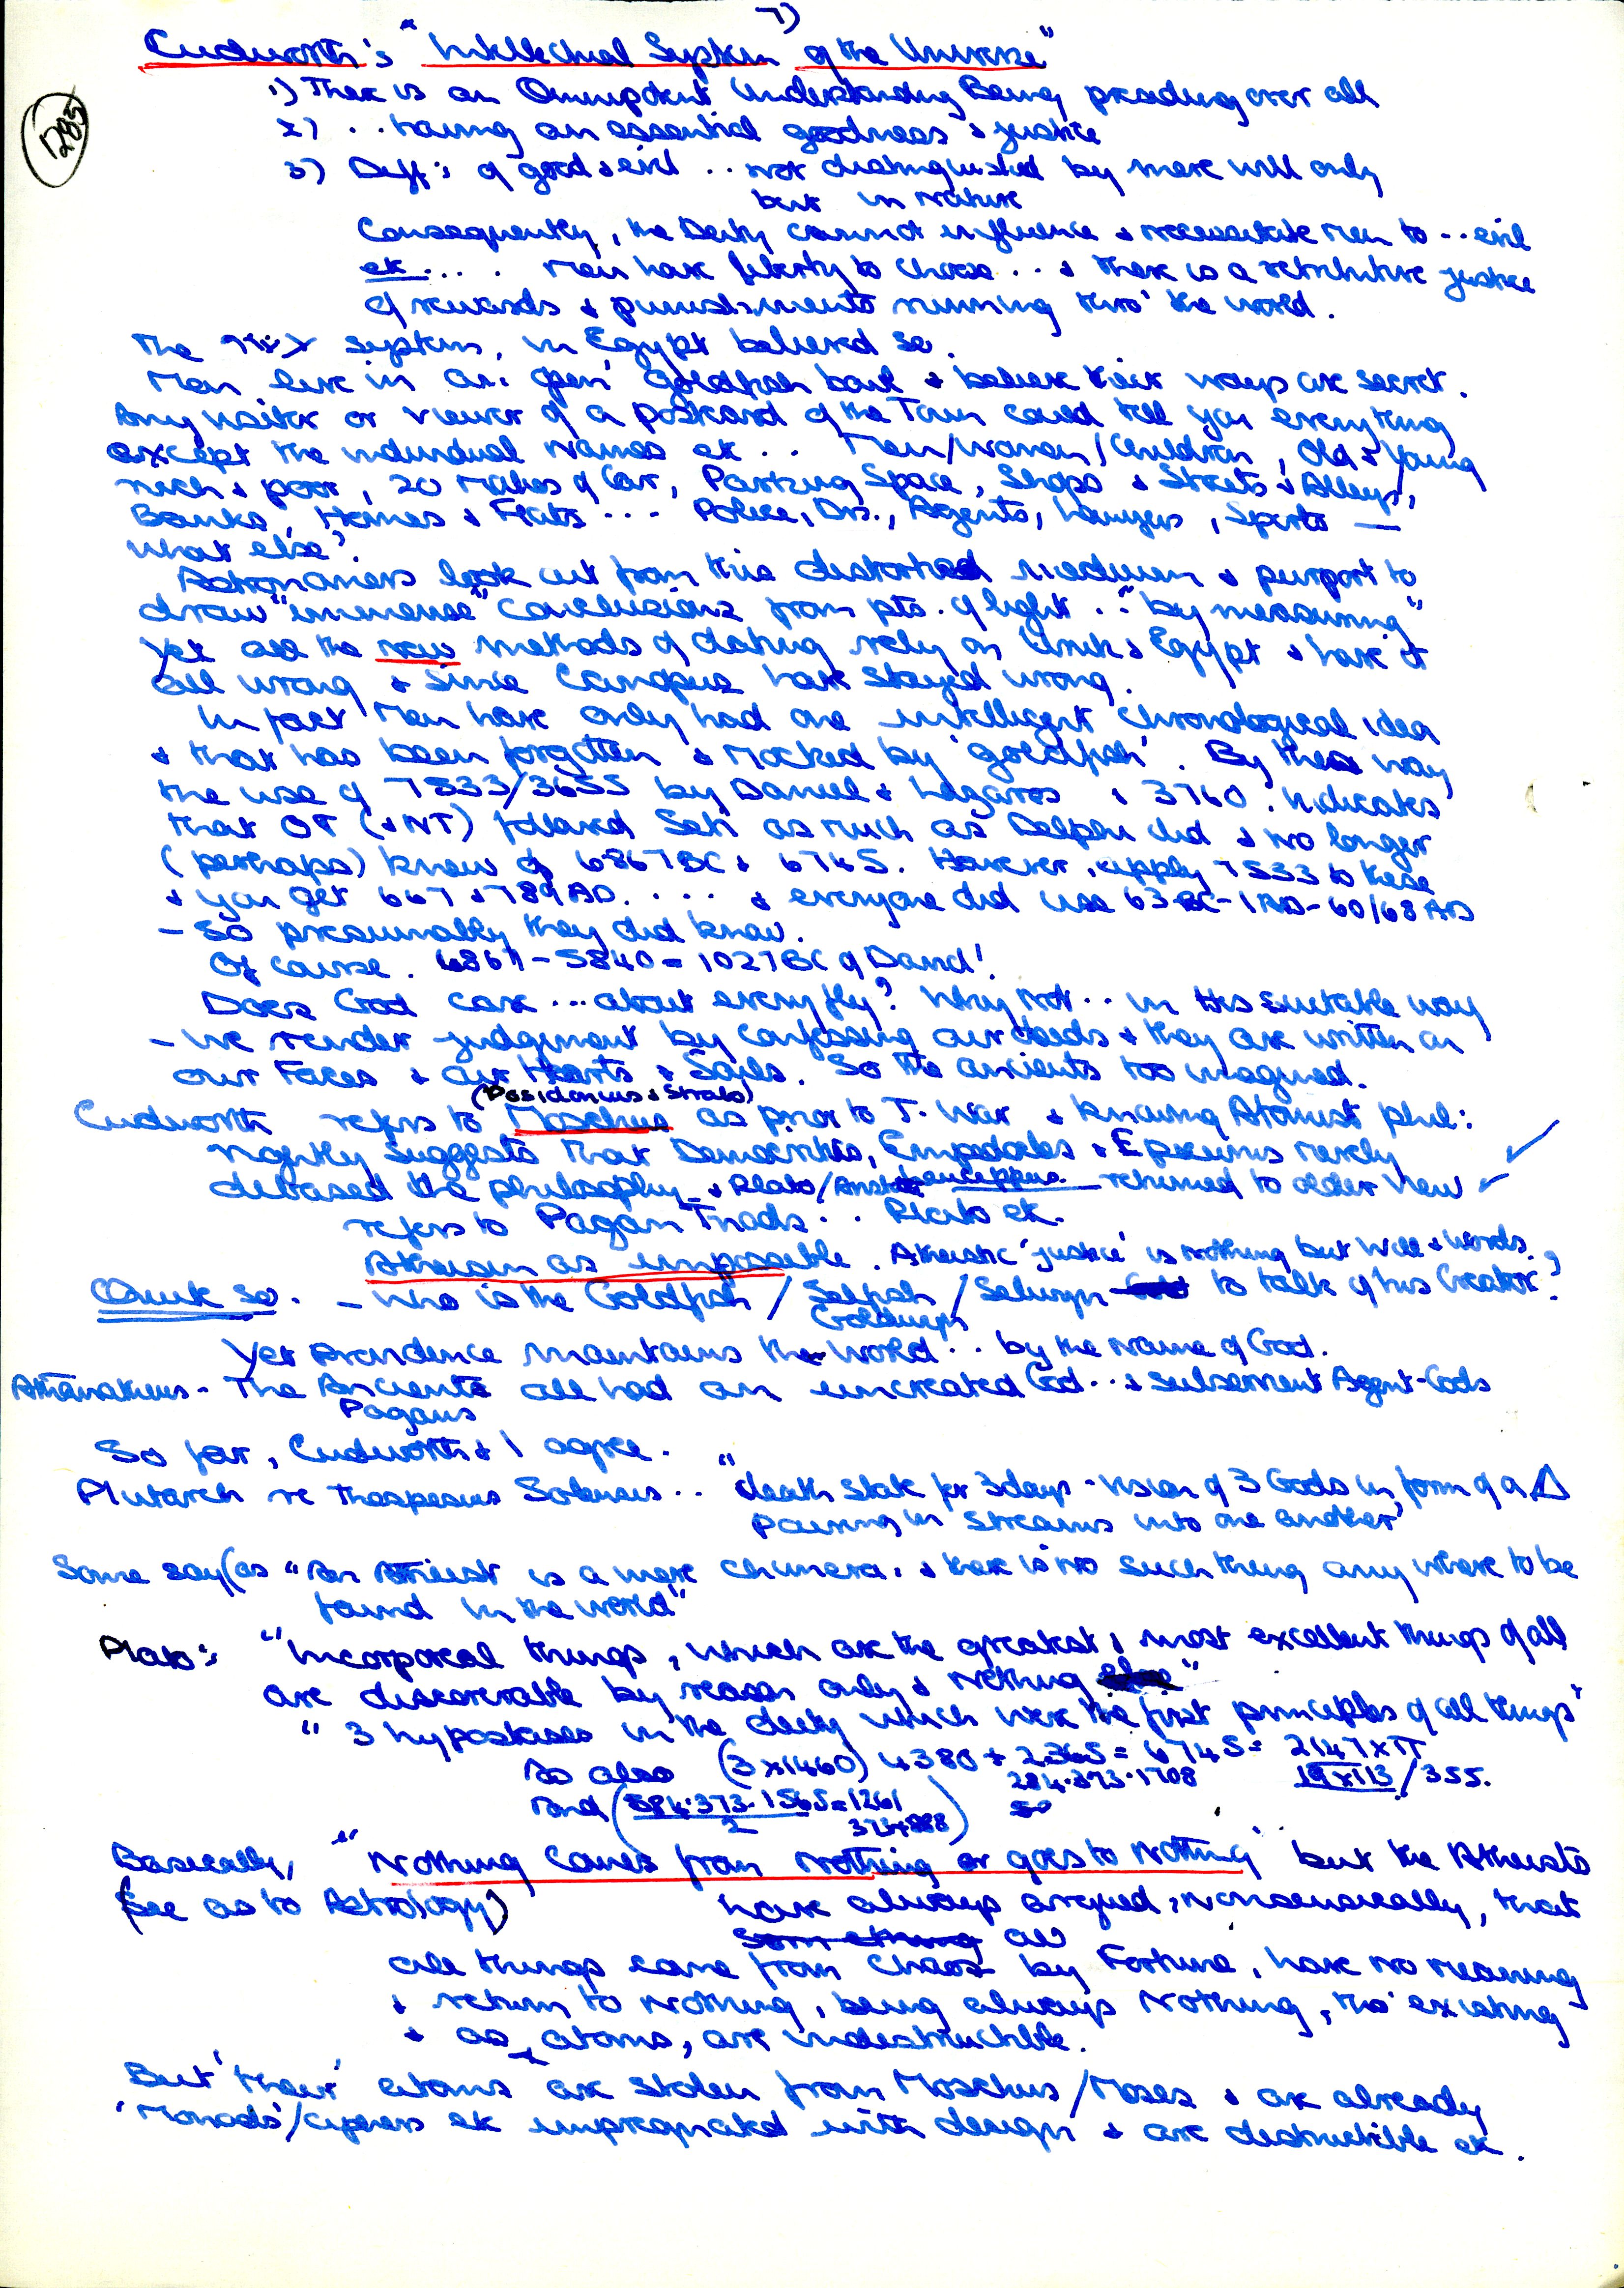 7)
Cudworth's "Intellectual System of the Universe"
1285
1) There is an Omnipotent Understanding Being presiding over all
2) .. having an essential goodness & justice
3) Diff:s of good & evil .. not distinguished by mere will only
but in nature
Consequently, the Deity cannot influence & necessitate men to .. evil
etc .... Men have liberty to choose ... & there is a retributive justice
of rewards & punishments running thro' the world.
The system, in Egypt believed so.
Men live in an 'open' goldfish bowl & believe their ways are secret.
Any visitor or viewer of a postcard of the Town could tell you everything
except the individual names etc .. Men/Women/Children, Old & Young
rich & poor, 20 makes of Car, Parking Space, Shops & Streets & Alleys,
Banks, Homes & Flats .... Police, Drs., Agents, Lawyers, Sports —
what else?
Astronomers look out from this distorted medium & purport to
draw "immense" conclusions from pts. of light .. "by measuring"
Yet all the new methods of dating rely on & Egypt & have it
all wrong & since Canopus have stayed wrong.
In fact Men have only had one intelligent chronological idea
& that has been forgotten & mocked by 'goldfish'. By the way
the use of 7533/3655 by Daniel & & 3760 indicates
that OT (& NT) followed Seti as much as Delphi did & no longer
(perhaps) knew of 6867BC & 6745. However, apply 7533 to these
& you get 667 & 789 AD. .... & everyone did use 63 BC-1AD-60/68 AD
- So presumably they did know.
Of course. 6867 - 5840 = 1027BC of David!
Does God care ... about every fly? Why not .. in His suitable way
- We render judgement by confessing our deeds & they are written on
our Faces & our Hearts & Souls. So the ancients too imagined.
(Posidonius & Strabo)
Cudworth refers to Moschus as prior to T. War & knowing Atomist phil:
rightly suggests that Democritus, Empedocles & Epicurus merely
debased the philosophy & Plato/Aristotle returned to older view
refers to Pagan Triads .. Plato etc.
Atheism as impossible. Atheistic 'justice' is nothing but Will & Words.
Quite so. - Who is the Goldfish / Selfish / to talk of his Creator?
Yet Providence maintains the World .. by the name of God.
- The Ancients all had an uncreated God .. & subservient Agent-Gods
Pagans
So far, Cudworth & I agree.
Plutarch re Thespesius Solensis .. "death state for 3 days - vision of 3 Gods in form of a Δ
pouring in streams into one another"
Some say (as "An Atheist is a mere chimera, & there is no such thing any where to be
found in the world"
Plato: "Incorporeal things, which are the greatest & most excellent things of all
are discoverable by reason only & nothing else"
"3 hypostases in the deity which were the first principles of all things"
As also (3x1460) 4380 + 2365 = 6745 = 2147 x π
284.373.1708
19 x 113 / 355.
and (584.373.1565=1261
2
Basically, "Nothing comes from nothing or goes to Nothing" but the Atheists
(See as to Astrology) have always argued, nonsensically, that
something as
all things came from Chaos by Fortune, have no meaning
& return to Nothing, being always Nothing, tho' existing
& as atoms, are indestructible.
But 'their' atoms are stolen from Moschus/Moses & are already
'Monads'/cyphers etc impregnated with design & are destructible etc.